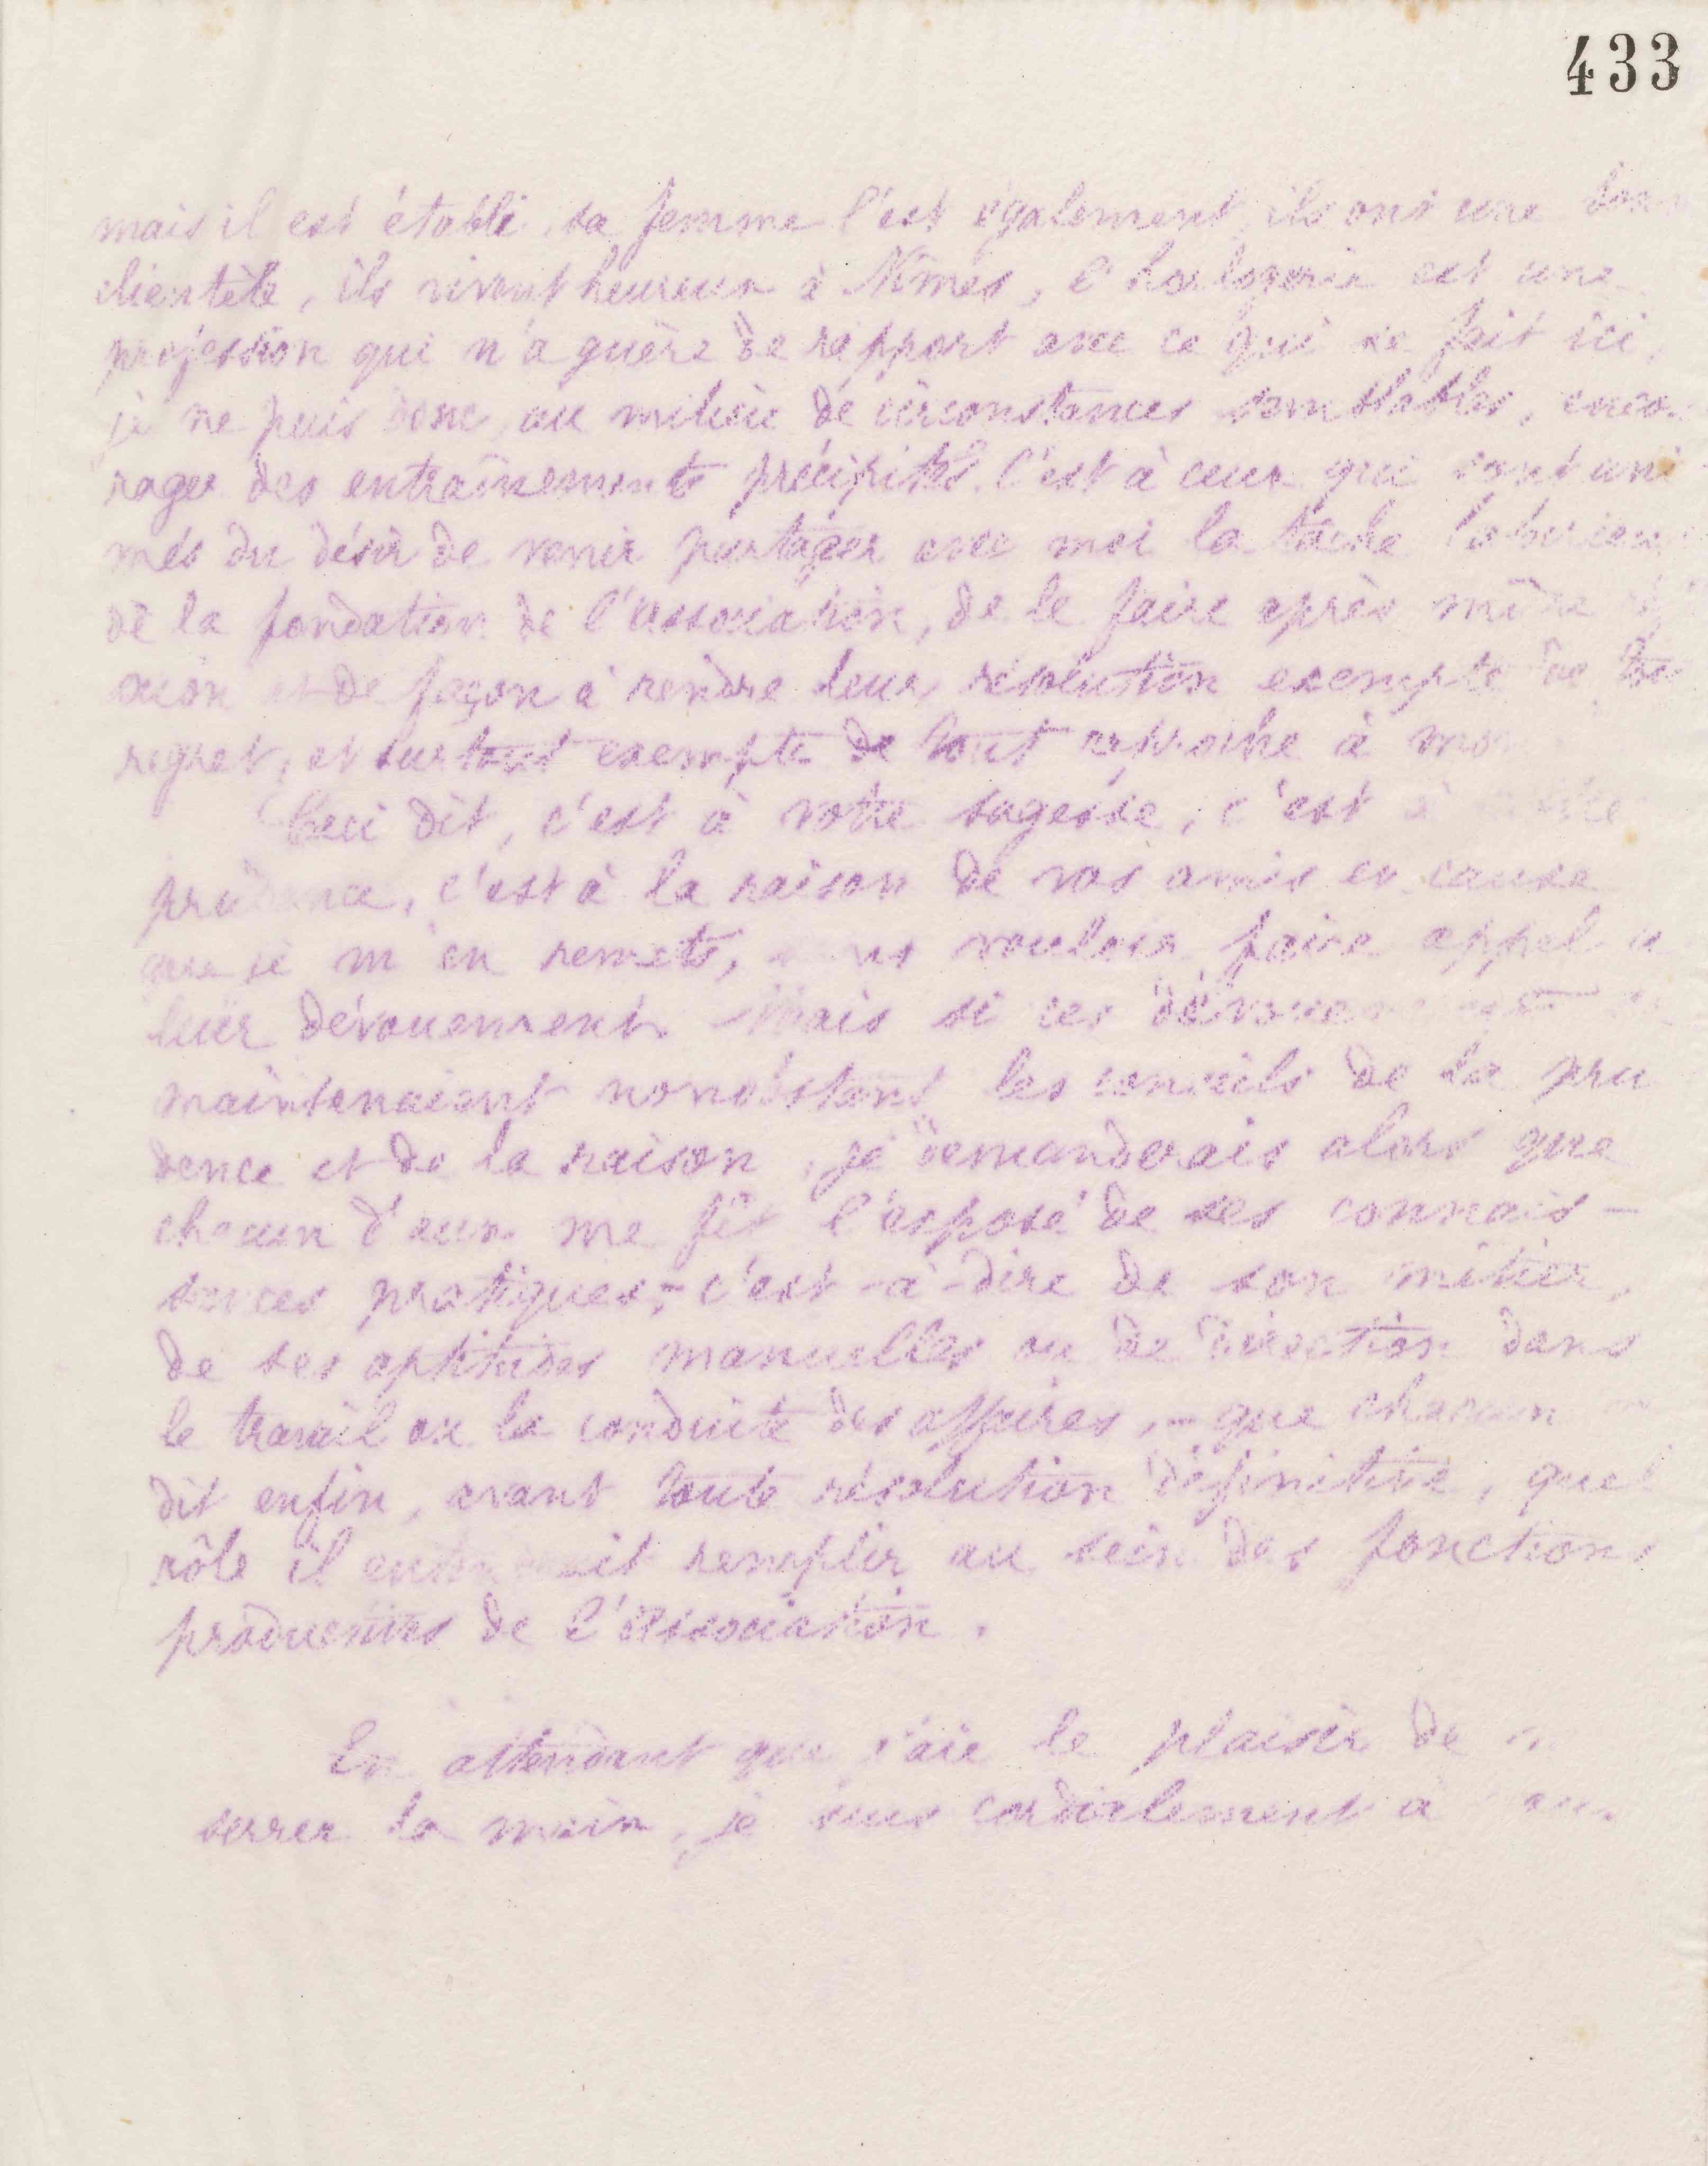 433
mais il est établi, sa femme l'est également, ils ont une bonn
clientèle, ils vivent heureux à Nîmes, l'horlogerie est une
profession qui n'a guère de rapport avec ce qui se fait ici,
je ne puis donc, au milieu de circonstances semblables, encou
rager des entraînements précipités. C'est à ceux qui sont ani
més du désir de venir partager avec moi la tâche laborieu
de la fondation de l'association, de le faire après mûre
xion et de façon à rendre leur résolution exempte de tou
regret, et surtout exempte de tout reproche à mon
Ceci dit, c'est à votre sagesse, c'est à votre
prudence, c'est à la raison de vos amis en cause
que je m'en remets, sans vouloir faire appel à
leur dévouement. Mais si ces dévouements
maintenaient nonobstant les conseils de la pru
dence et de la raison, je demanderais alors que
chacun d'eux me fît l'exposé de ses connais-
sances pratiques, - c'est-à-dire de son métier,
de ses aptitudes manuelles ou de direction dans
le travail ou la conduite des affaires, - que chacun
dit enfin, avant toute résolution définitive, quel
rôle il entendrait remplir au sein des fonctions
productives de l'association.
En attendant que j'aie le plaisir de
serrer la main, je suis cordialement à vous